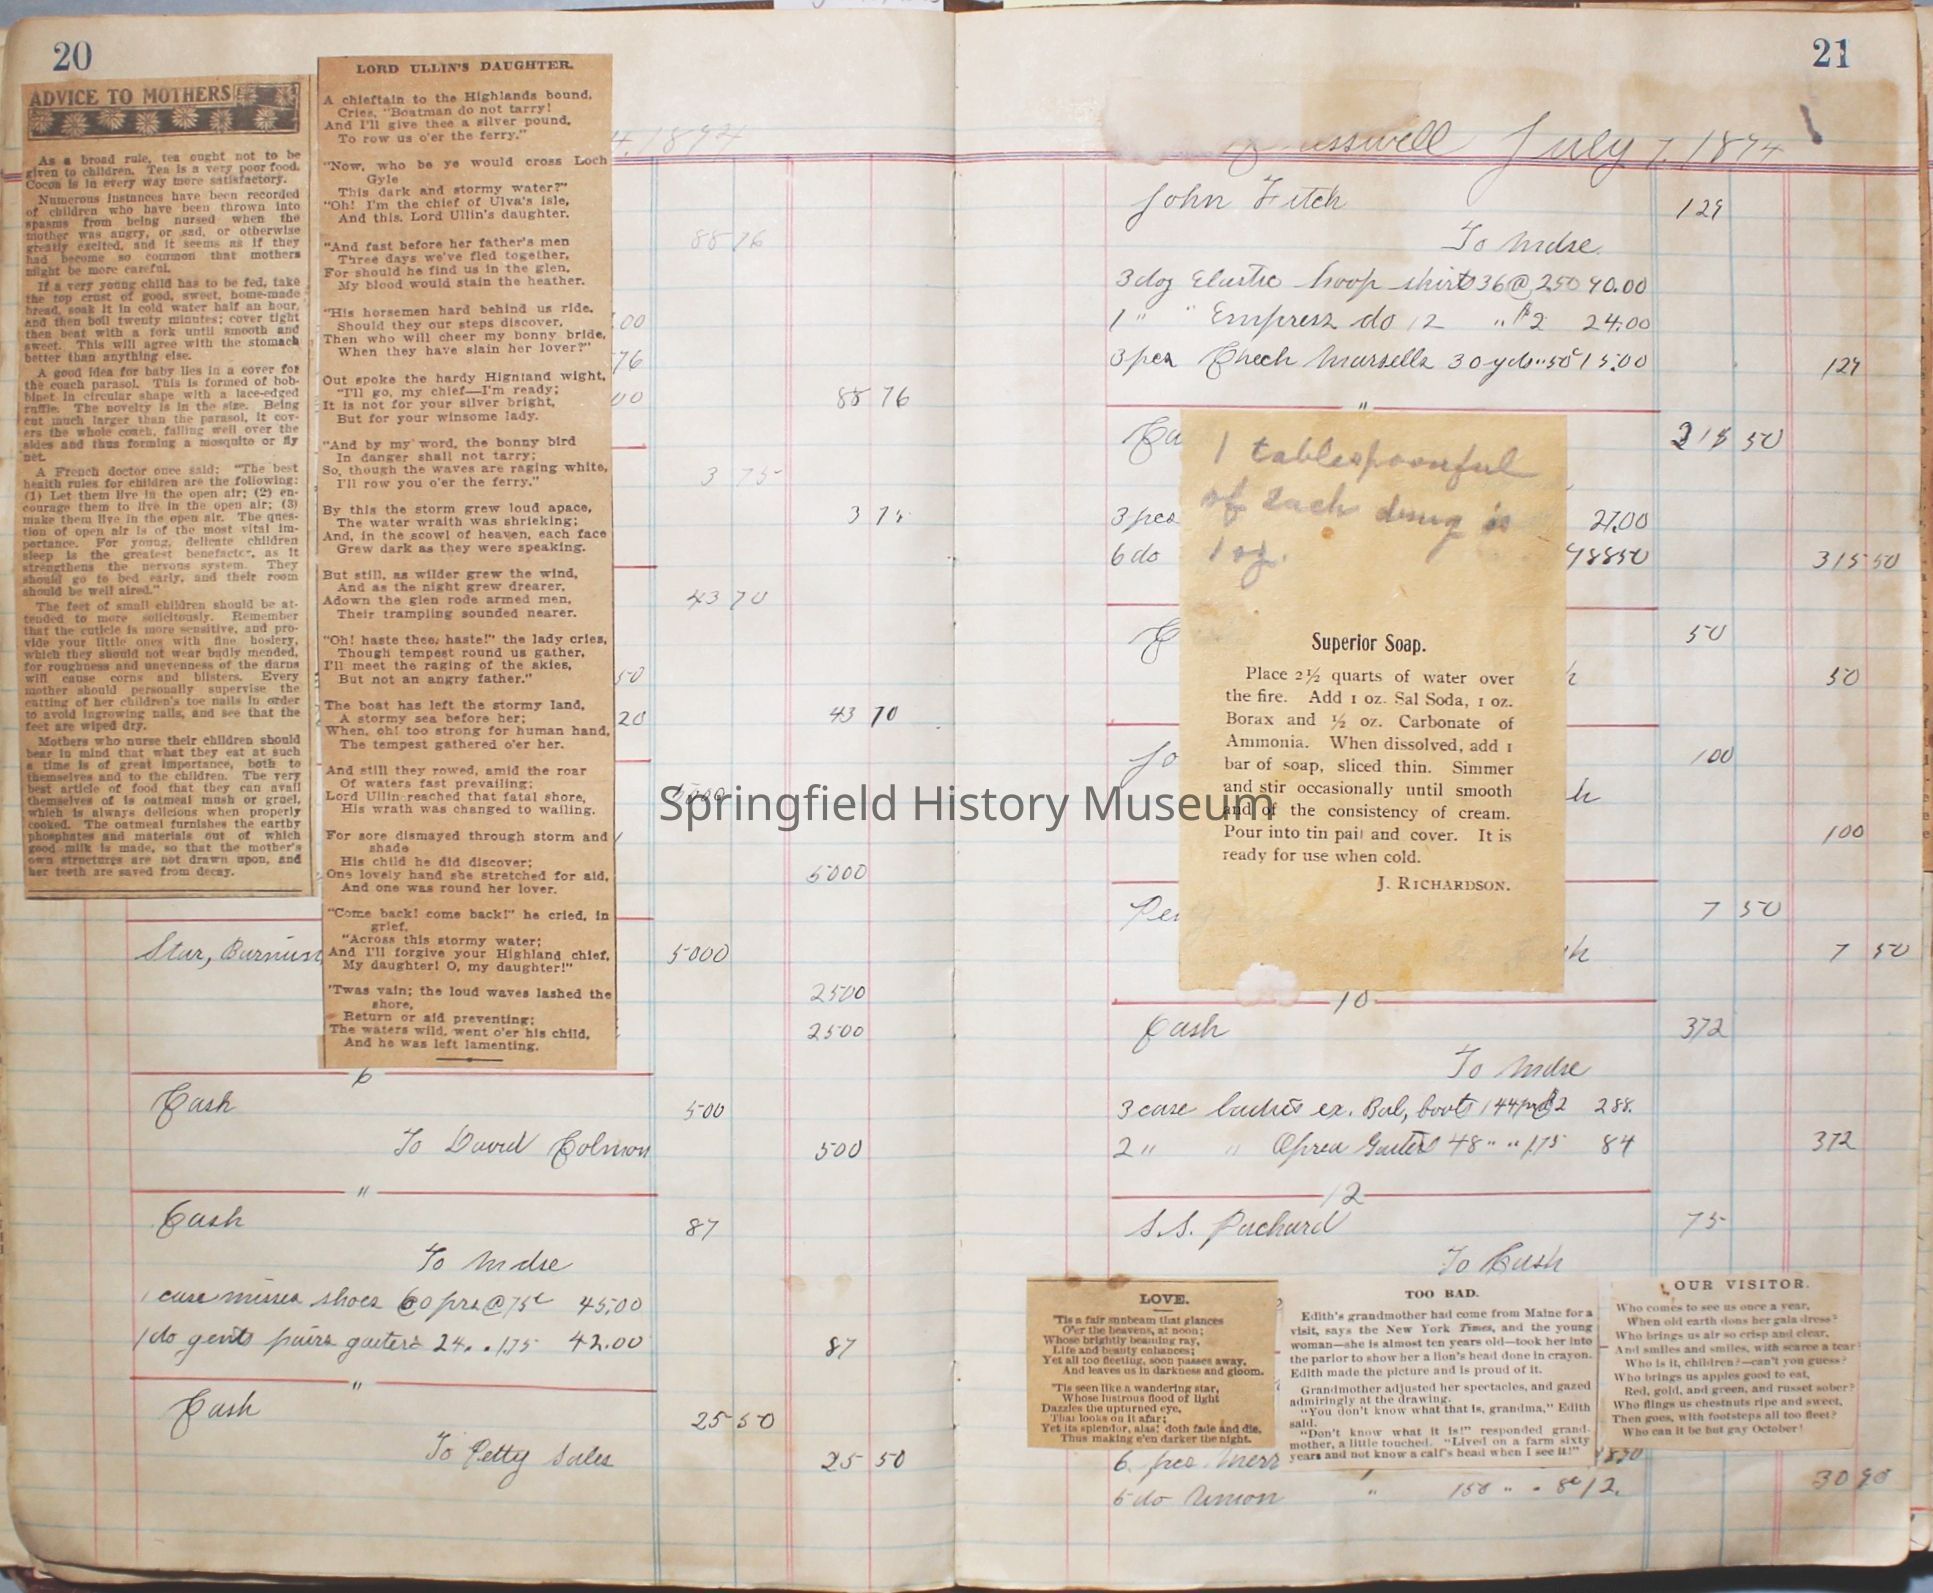 20
ADVICE TO MOTHERS
As a broad rule, tea ought not to be
given to children. Tea is a very poor food.
Cocoa is in every way more satisfactory.
Numerous instances have been recorded
of children who have been thrown into
spasms from being nursed when the
mother was angry, or sad, or otherwise
greatly excited, and it seems as if they
had become so common that mothers
might be more careful.
If a very young child has to be fed, take
the top crust of good, sweet, home-made
bread, soak it in cold water half an hour,
and then boil twenty minutes; cover tight
then beat with a fork until smooth and
sweet. This will agree with the stomach
better than anything else.
A good idea for baby lies in a cover for
the coach parasol. This is formed of bob-
binet in circular shape with a lace-edged
ruffle. The novelty is in the size. Being
cut much larger than the parasol, it cov-
ers the whole coach, falling well over the
sides and thus forming a mosquito or fly
net.
A French doctor once said: "The best
health rules for children are the following:
(1) Let them live in the open air; (2) en-
courage them to live in the open air; (3)
make them live in the open air. The ques-
tion of open air is of the most vital im-
portance. For young, delicate children
sleep is the greatest benefactor, as it
strengthens the nervous system. They
should go to bed early, and their room
should be well aired."
The feet of small children should be at-
tended to more solicitously. Remember
that the cuticle is more sensitive, and pro-
vide your little ones with fine hosiery,
which they should not wear badly mended,
for roughness and unevenness of the darns
will cause corns and blisters. Every
mother should personally supervise the
cutting of her children's toe nails in order
to avoid ingrowing nails, and see that the
feet are wiped dry.
Mothers who nurse their children should
bear in mind that what they eat at such
a time is of great importance, both to
themselves and to the children. The very
best article of food that they can avail
themselves of is oatmeal mush or gruel,
which is always delicious when properly
cooked. The oatmeal furnishes the earthy
phosphates and materials out of which
good milk is made, so that the mother's
own structures are not drawn upon, and
her teeth are saved from decay.
LORD ULLIN'S DAUGHTER.
A chieftain to the Highlands bound,
Cries, "Boatman do not tarry!
And I'll give thee a silver pound,
To row us o'er the ferry."
"Now, who be ye would cross Loch
Gyle
This dark and stormy water?"
"Oh! I'm the chief of Ulva's isle,
And this, Lord Ullin's daughter.
"And fast before her father's men
Three days we've fled together,
For should he find us in the glen,
My blood would stain the heather.
"His horsemen hard behind us ride.
Should they our steps discover,
Then who will cheer my bonny bride,
When they have slain her lover?"
Out spoke the hardy Highland wight,
"I'll go, my chief—I'm ready;
It is not for your silver bright,
But for your winsome lady.
"And by my word, the bonny bird
In danger shall not tarry;
So, though the waves are raging white,
I'll row you o'er the ferry."
By this the storm grew loud apace,
The water wraith was shrieking;
And, in the scowl of heaven, each face
Grew dark as they were speaking.
But still, as wilder grew the wind,
And as the night grew drearer,
Adown the glen rode armed men,
Their trampling sounded nearer.
"Oh! haste thee, haste!" the lady cries,
Though tempest round us gather,
I'll meet the raging of the skies,
But not an angry father."
The boat has left the stormy land,
A stormy sea before her;
When, oh! too strong for human hand,
The tempest gathered o'er her.
And still they rowed, amid the roar
Of waters fast prevailing;
Lord Ullin reached that fatal shore,
His wrath was changed to wailing.
For sore dismayed through storm and
shade
His child he did discover;
One lovely hand she stretched for aid,
And one was round her lover.
"Come back! come back!" he cried, in
grief,
"Across this stormy water;
And I'll forgive your Highland chief,
My daughter! O, my daughter!"
'Twas vain; the loud waves lashed the
shore,
Return or aid preventing;
The waters wild, went o'er his child,
And he was left lamenting.
4, 1874
88 76
00
76
00
88 76
3 75
3 75
43 70
50
20
43 70
5000
5000
Star, 5000
2500
2500
6
Cash 500
To David Colmon 500
"
Cash 87
To Mdse
1 case misses shoes 60 prs @ 75c 45.00
1 do gents pairs gaiters 24 " " 1.75 42.00 87
"
Cash 25 50
To Petty Sales 25 50
21
July 7, 1874
John Fitch 129
To Mdse.
3 doz Elastic hoop skirts 36 @ 2.50 90.00
1 " " Empress do 12 " $2 24.00
3 pcs Check Marsells 30 yds " 50c 15.00 129
"
Ca 315 50
3 pcs 27.00
6 do 315 50
50
50
Jo 100
100
7 50
7 50
1 tablespoonful
of each drug is
1 oz.
Superior Soap.
Place 2½ quarts of water over
the fire. Add 1 oz. Sal Soda, 1 oz.
Borax and ½ oz. Carbonate of
Ammonia. When dissolved, add 1
bar of soap, sliced thin. Simmer
and stir occasionally until smooth
and of the consistency of cream.
Pour into tin pail and cover. It is
ready for use when cold.
J. RICHARDSON.
10
Cash 372
To Mdse
3 case ladies ex. Bal, boots 144 prs $2 288.
2 " " Opera Gaiters 48 " " 1.75 84 372
12
S.S. Packard 75
To Cash
LOVE.
'Tis a fair sunbeam that glances
O'er the heavens, at noon;
Whose brightly beaming ray,
Life and beauty enhances;
Yet all too fleeting, soon passes away,
And leaves us in darkness and gloom.
'Tis seen like a wandering star,
Whose lustrous flood of light
Dazzles the upturned eye,
That looks on it afar;
Yet its splendor, alas! doth fade and die,
Thus making e'en darker the night.
TOO BAD.
Edith's grandmother had come from Maine for a
visit, says the New York Times, and the young
woman—she is almost ten years old—took her into
the parlor to show her a lion's head done in crayon.
Edith made the picture and is proud of it.
Grandmother adjusted her spectacles, and gazed
admiringly at the drawing.
"You don't know what that is, grandma," Edith
said.
"Don't know what it is!" responded grand-
mother, a little touched. "Lived on a farm sixty
years and not know a calf's head when I see it!"
OUR VISITOR.
Who comes to see us once a year,
When old earth dons her gala dress?
Who brings us air so crisp and clear,
And smiles and smiles, with scarce a tear?
Who is it, children?—can't you guess?
Who brings us apples good to eat,
Red, gold, and green, and russet sober?
Who flings us chestnuts ripe and sweet,
Then goes, with footsteps all too fleet?
Who can it be but gay October!
6 pcs Merr
5 do Union " 150 " " 8c 12. 30 90
Springfield History Museum